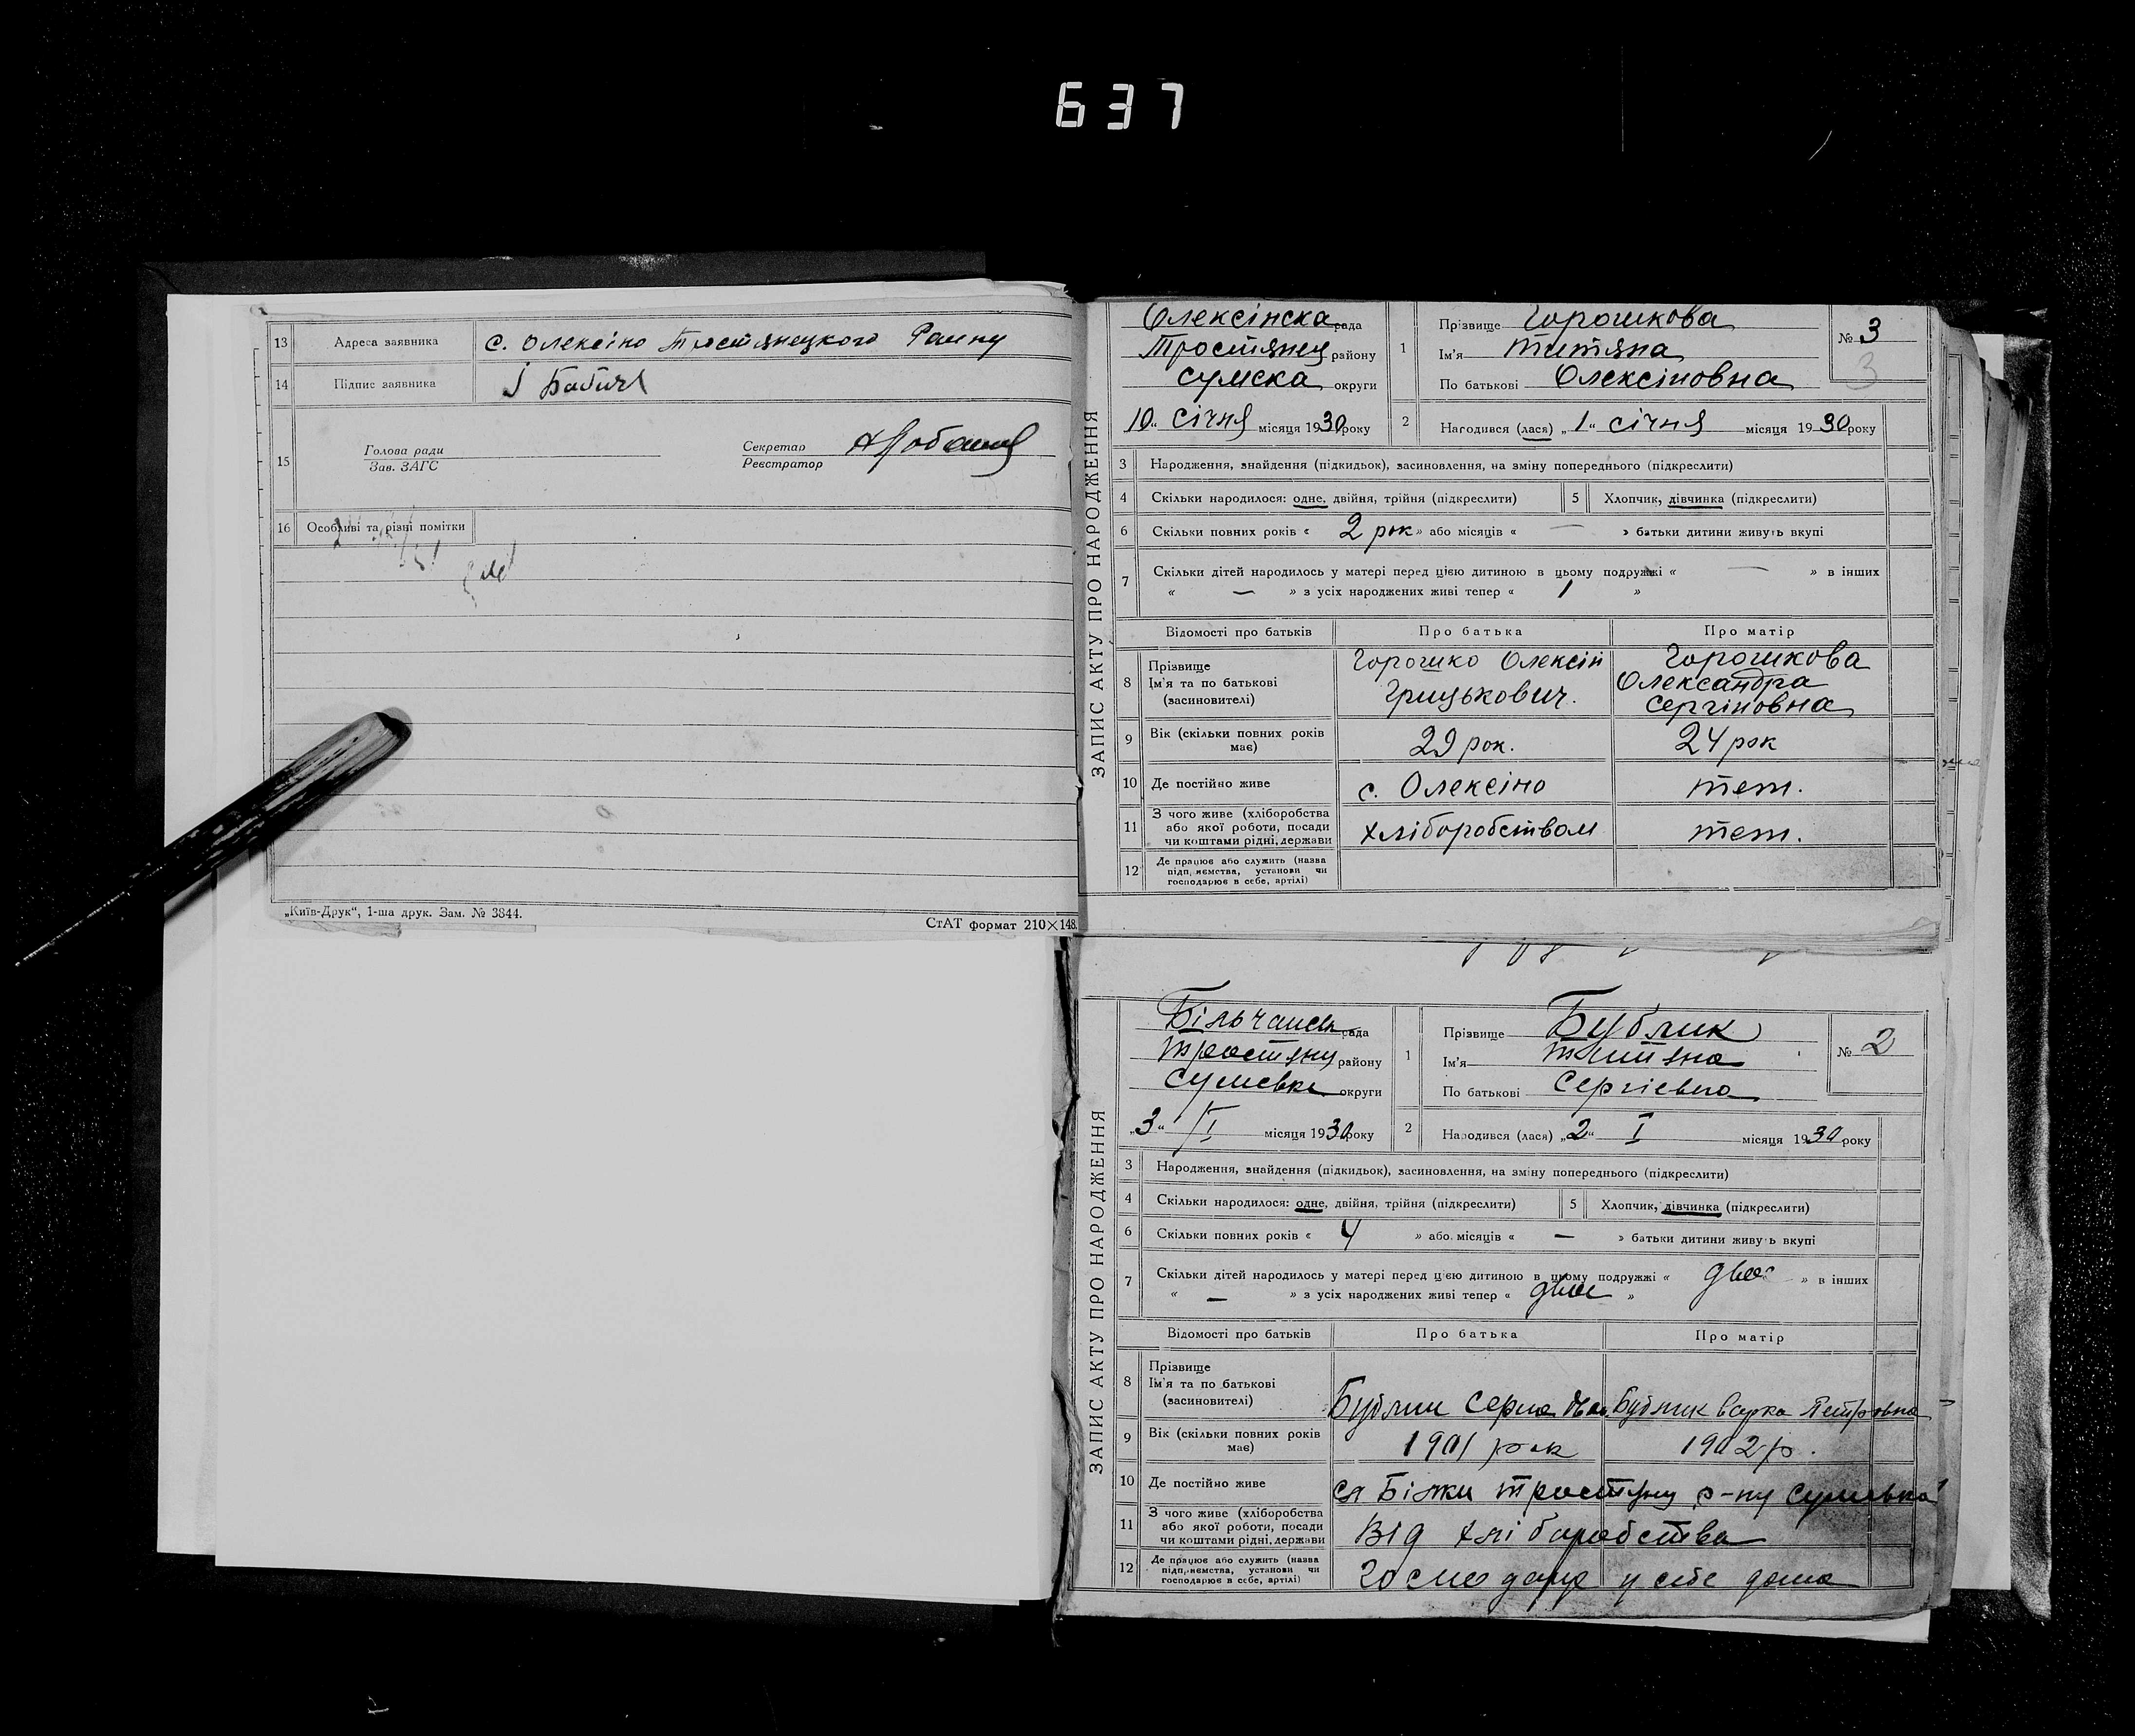 637
13 Адреса заявника с. Олексіно Тростянецкого Району
14 Підпис заявника
15 Голова ради
Зав. ЗАГС
Секретар
Реєстратор
16 Особливі та різні помітки
„Київ-Друк“, 1-ша друк. Зам. № 3844.
СтАТ формат 210×148.
ЗАПИС АКТУ ПРО НАРОДЖЕННЯ
Олексінска рада
Тростянец району
Сумска округи
10 „ Січня місяця 1930 року
1 Прізвище Горошкова
Ім'я Титяна
По батькові Олексіновна
№ 3
3
2 Народився (лася) „1“ Січня місяця 1930 року
3 Народження, знайдення (підкидьок), засиновлення, на зміну попереднього (підкреслити)
4 Скільки народилося: одне, двійня, трійня (підкреслити) 5 Хлопчик, дівчинка (підкреслити)
6 Скільки повних років « 2 рок » або місяців « — » батьки дитини живуть вкупі
7 Скільки дітей народилось у матері перед цією дитиною в цьому подружжі « — » в інших
« — » з усіх народжених живі тепер « 1 »
Відомості про батьків Про батька Про матір
8 Прізвище
Ім'я та по батькові
(засновителі)
Горошко Олексій
Грицькович.
Горошкова
Олександра
Сергіновна
9 Вік (скільки повних років
має) 29 рок. 24 рок
10 Де постійно живе с. Олексіно тет.
11 З чого живе (хліборобства
або якої роботи, посади
чи коштами рідні, держави
хліборобством тет.
12 Де працює або служить (назва
підприємства, установи чи
господарює в себе, артілі)
ЗАПИС АКТУ ПРО НАРОДЖЕННЯ
рада
Тростяну району
округи
„3“ I місяця 1930 року
1 Прізвище Бублик
Ім'я Титяна
По батькові Сергієвна
№ 2
2 Народився (лася) „2“ I місяця 1930 року
3 Народження, знайдення (підкидьок), засиновлення, на зміну попереднього (підкреслити)
4 Скільки народилося: одне, двійня, трійня (підкреслити) 5 Хлопчик, дівчинка (підкреслити)
6 Скільки повних років « 4 » або місяців « — » батьки дитини живуть вкупі
7 Скільки дітей народилось у матері перед цією дитиною в цьому подружжі « двоє » в інших
« — » з усіх народжених живі тепер « двоє »
Відомості про батьків Про батька Про матір
8 Прізвище
Ім'я та по батькові
(засиновителі)
Бублик Бублик Варка Петровна
9 Вік (скільки повних років
має) 1901 рок 1902 р.
10 Де постійно живе Білки Тростяну р-ну
11 З чого живе (хліборобства
або якої роботи, посади
чи коштами рідні, держави
Від хліборобства
12 Де працює або служить (назва
підприємства, установи чи
господарює в себе, артілі)
Господарує у себе дома